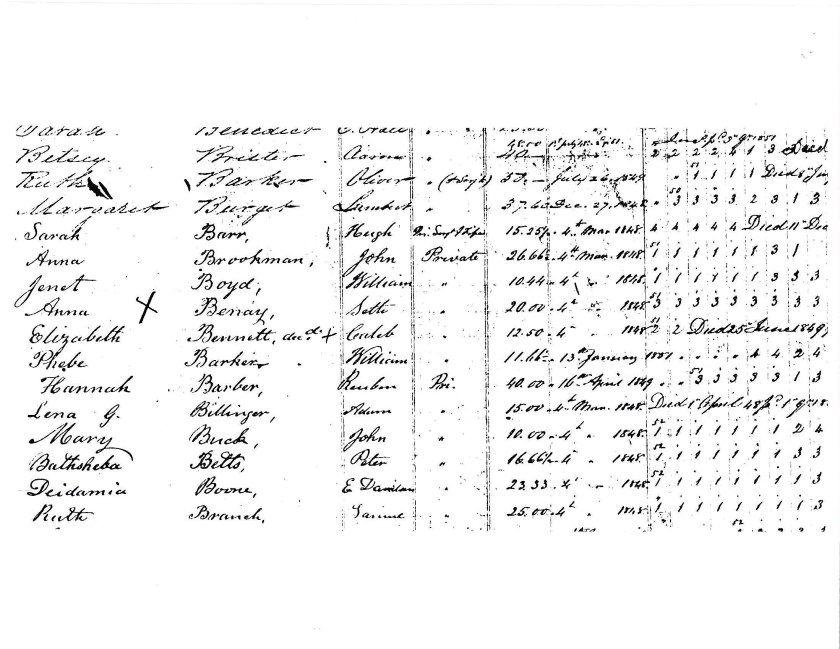 Sarah Benedict
Betsey Brister Aaron " 48.00 2 2 2 2 4 1 3 Died
Ruth Barker Oliver " 30. — July 26. 1849 " 1 1 1 1 Died
Margaret Burget Lambert " 37.60 Dec. 27. 1848 " 3 3 3 3 2 3 1 3
Sarah Barr, Hugh 15.25½ " 4th Mar. 1848 4 4 4 4 4 Died 11 Dec
Anna Brookman, John Private 26.66½ " 4th Mar. 1848. 1 1 1 1 1 1 3 1
Jenet Boyd, William " 10.44 " 4th " 1848. 1 1 1 1 1 3 3 3
Anna X Benay, Seth " 20.00 " 4th " 1848 3 3 3 3 3 3 3 3
Elizabeth Bennett, decd X Caleb " 12.50 " 4th " 1848 2 2 Died 25 June 1849
Phebe Barker, William " 11.66 " 13th January 1851 " " " " 4 4 2 4
Hannah Barber, Reuben Pri. 40.00 " 16th April 1849 " " 3 3 3 3 1 3
Lena G. Billinger, Adam " 15.00 " 4th Mar. 1848. Died 1 April 48
Mary Buck, John " 10.00 " 4th " 1848. 1 1 1 1 1 1 2 4
Bathsheba Betts, Peter " 16.66½ " 4th " 1848 1 1 1 1 1 1 3 3
Deidamia Boone, E Davidson " 23.33 " 4th " 1848 1 1 1 1 1 1 1 3
Ruth Branch, Samuel " 25.00 " 4th " 1848 1 1 1 1 1 1 1 3